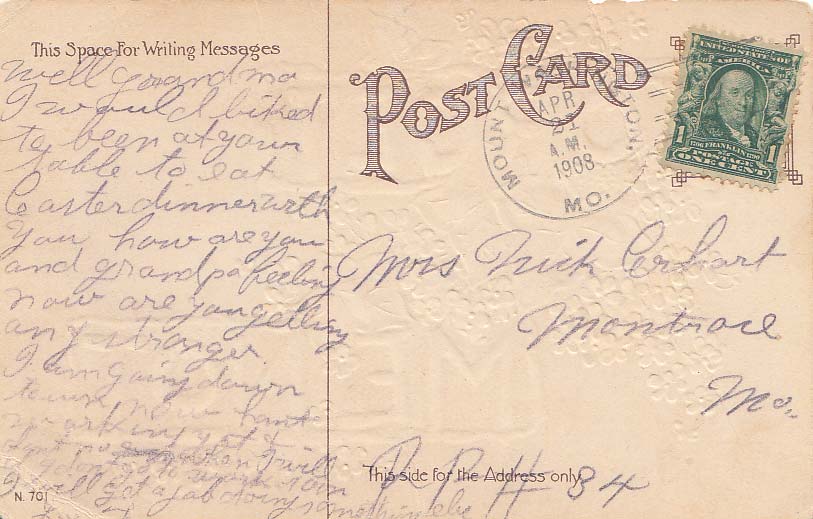 This Space For Writing Messages
Well Grandma
I would liked
to been at your
table to eat
Easter dinner with
you how are you
and grandpa feeling
now are you getting
any stronger
I am going down
town now hant
working yet &
when I will
I will get a job doing something else
N. 701
POST CARD
MOUNT
APR
21
A.M.
1908
MO.
UNITED STATES OF AMERICA
1706 FRANKLIN 1790
1 1
POSTAGE
ONE CENT
Mrs Erhart
Montrose
Mo.
This side for the Address only
84